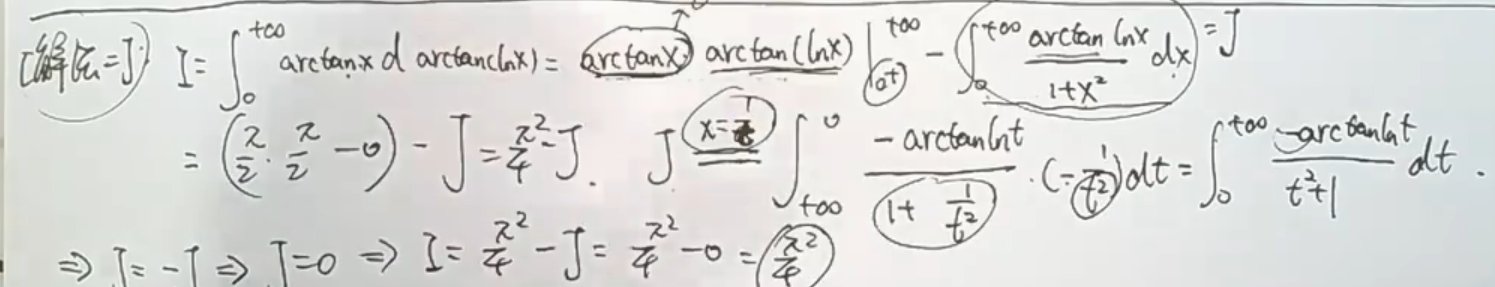 [解法二] I = ∫₀^{+∞} arctanx d arctan(lnx) = arctanx arctan(lnx) |_{0+}^{+∞} - ∫₀^{+∞} \frac{arctan lnx}{1+x²} dx = J
= (\frac{π}{2} · \frac{π}{2} - 0) - J = \frac{π²}{4} - J. J \overset{x=\frac{1}{t}}{=} ∫_{+∞}^{0} \frac{-arctanlnt}{1+\frac{1}{t²}} · (-\frac{1}{t²})dt = ∫₀^{+∞} \frac{-arctanlnt}{t²+1} dt .
⇒ J = -J ⇒ J=0 ⇒ I = \frac{π²}{4} - J = \frac{π²}{4} - 0 = \frac{π²}{4}